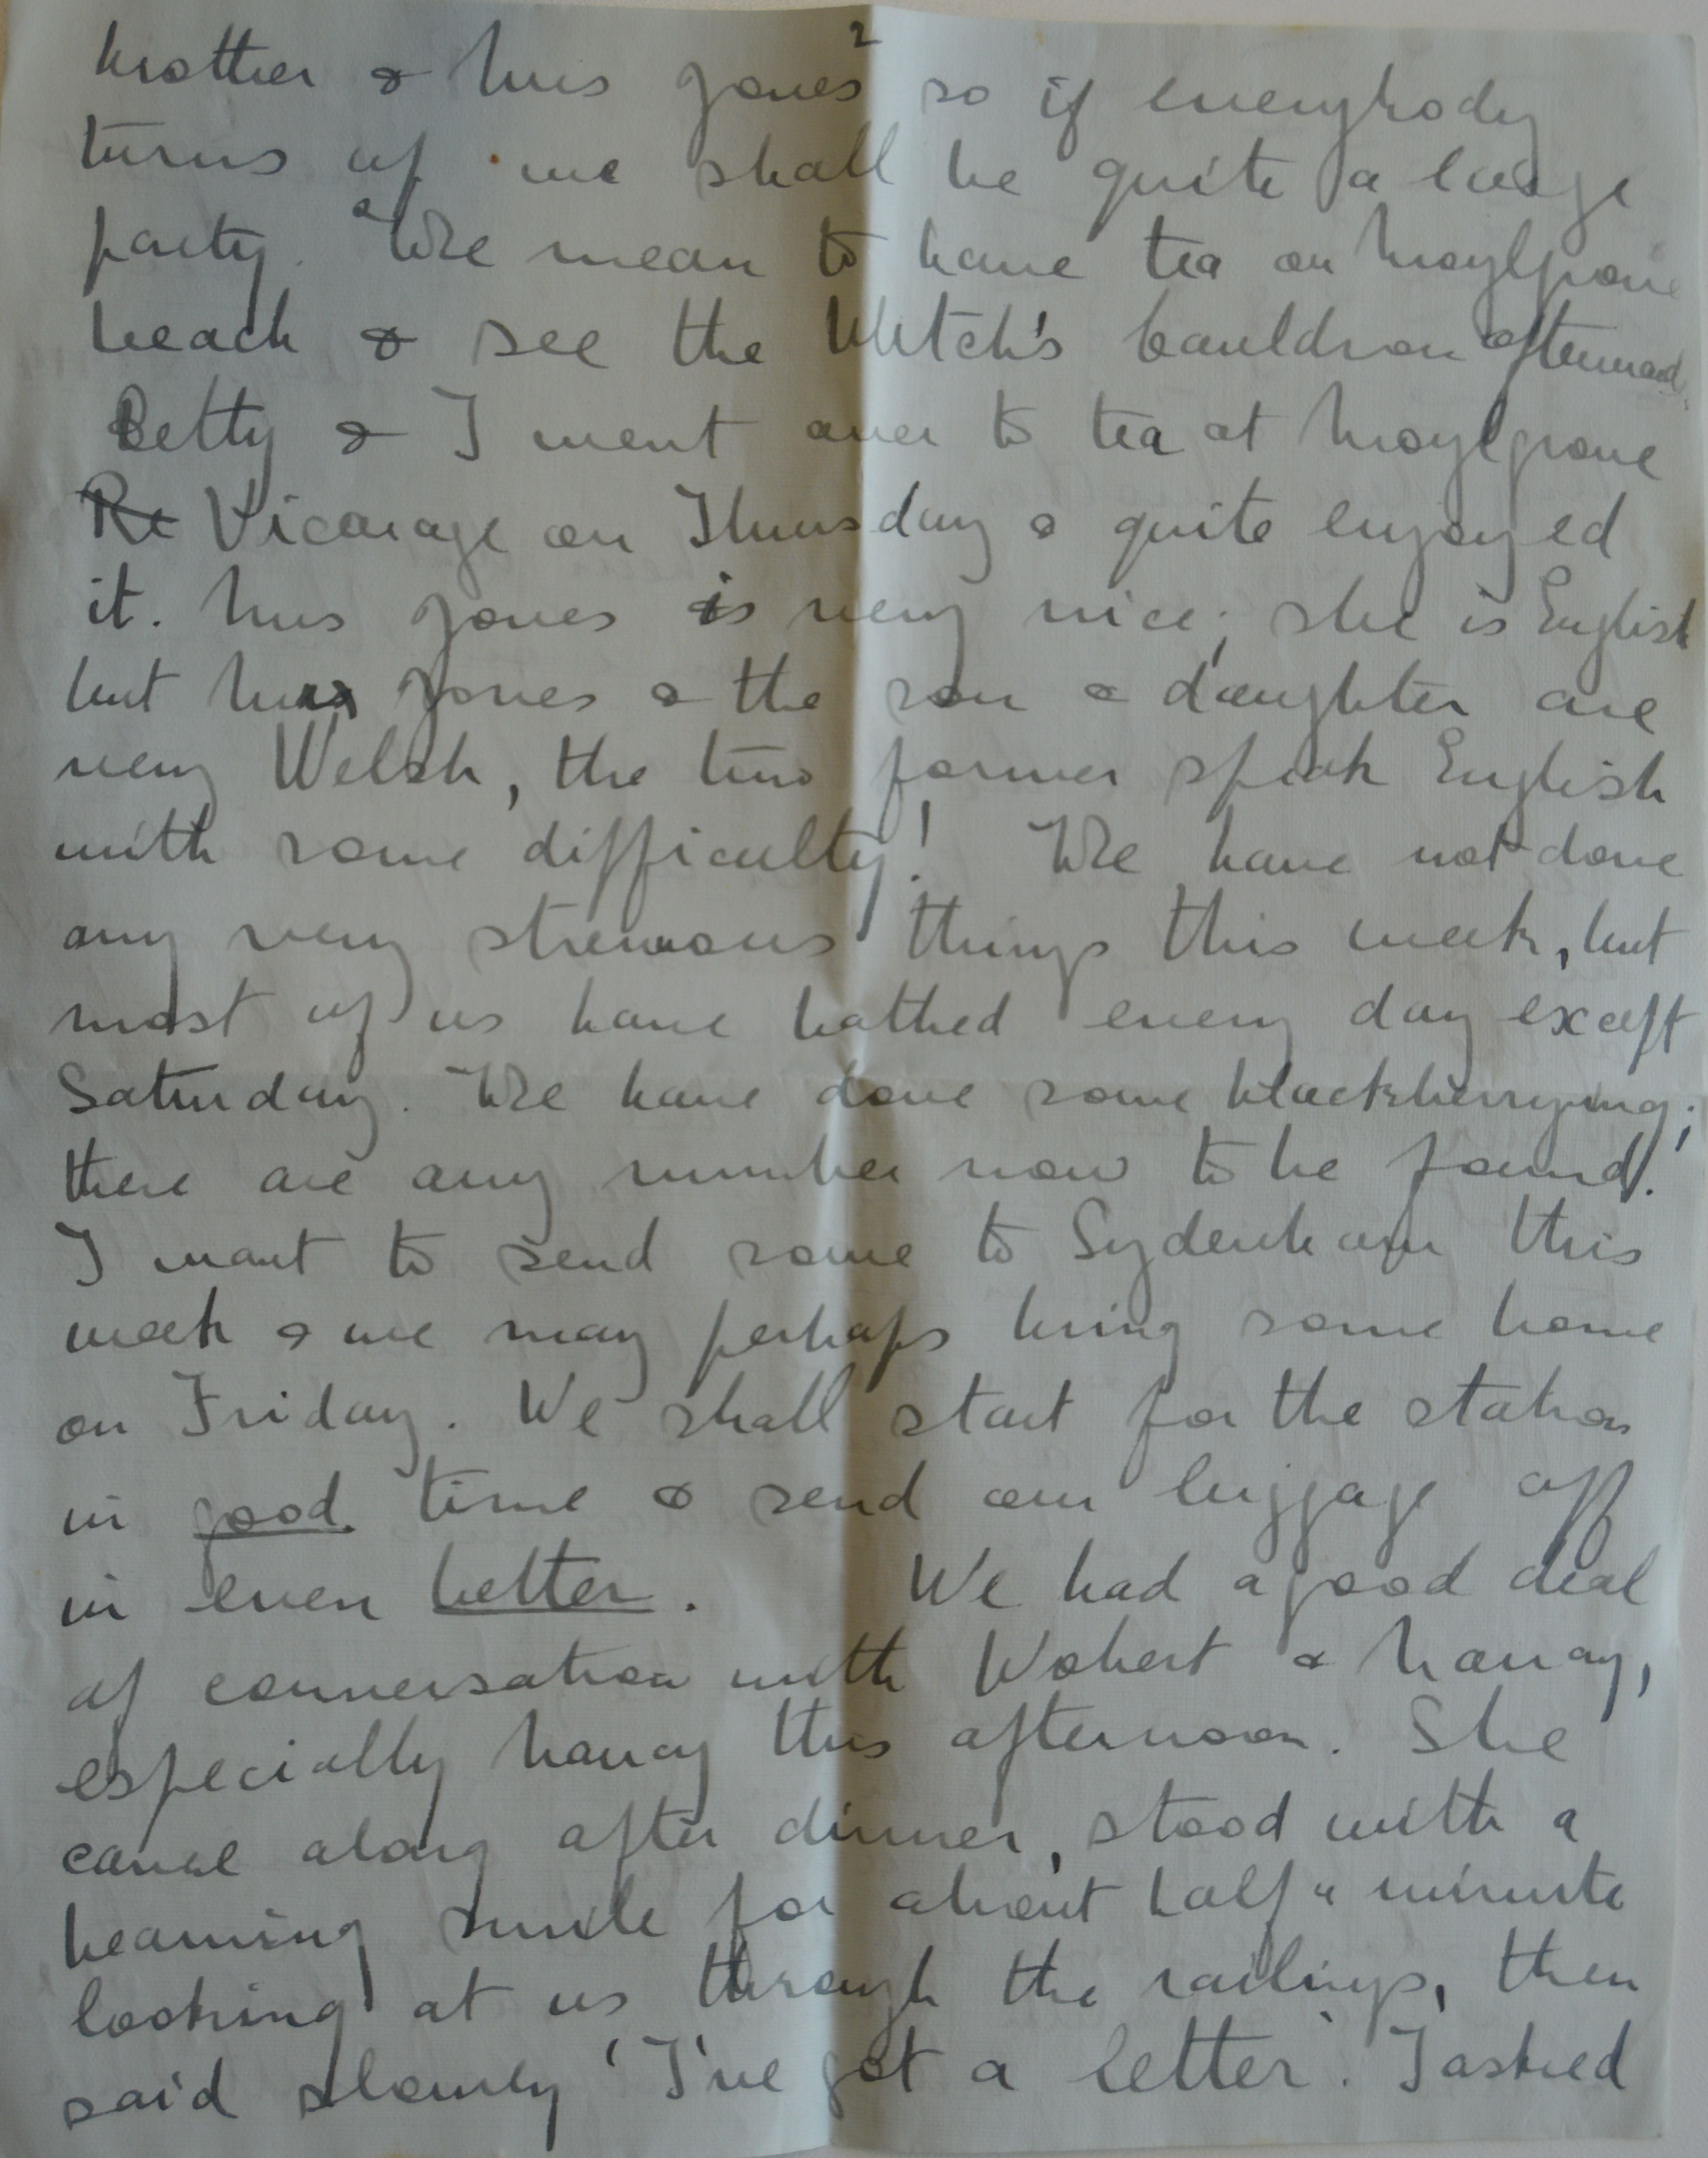 2
brother & Mrs Jones so if everybody
turns up we shall be quite a large
party. We mean to have tea on Moylgrove
beach & see the Witch's Cauldron afterwards.
Betty & I went over to tea at Moylgrove
Re Vicarage on Thursday & quite enjoyed
it. Mrs Jones is very nice; she is English
but Jones & the son & daughter are
very Welsh, the two former speak English
with some difficulty! We have not done
any very strenuous things this week, but
most of us have bathed every day except
Saturday. We have done some blackberrying;
there are any number now to be found.
I want to send some to Sydenham this
week & we may perhaps bring some home
on Friday. We shall start for the station
in good time & send our luggage off
in even better. We had a good deal
of conversation with Wobert & Nancy,
especially Nancy this afternoon. She
came along after dinner, stood with a
beaming smile for about half a minute
looking at us through the railings, then
said slowly 'I've got a letter'. I asked